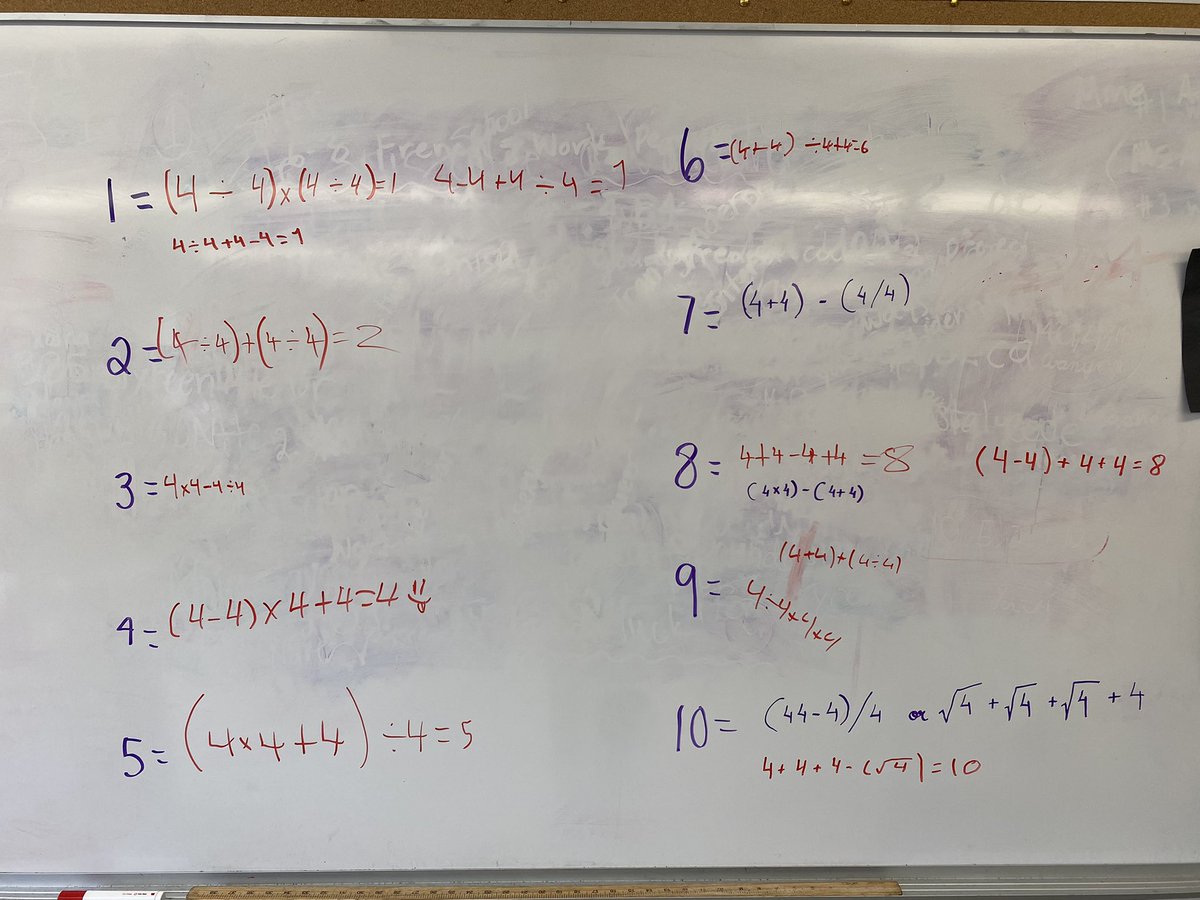 1 = (4 ÷ 4)×(4 ÷ 4)=1 4-4+4 ÷ 4 = 1
4÷4+4-4=1
2 = (4÷4)+(4÷4)=2
3 = 4×4-4÷4
4 = (4-4)×4+4=4
5 = (4×4+4) ÷4=5
6 =(4+4) ÷4+4=6
7 = (4+4) - (4/4)
8 = 4+4-4+4 =8 (4-4)+4+4=8
(4×4)-(4+4)
(4+4)+(4÷4)
9 = 4÷4
10 = (44-4)/4 or √4 +√4 +√4 +4
4+4+4-(√4)=10